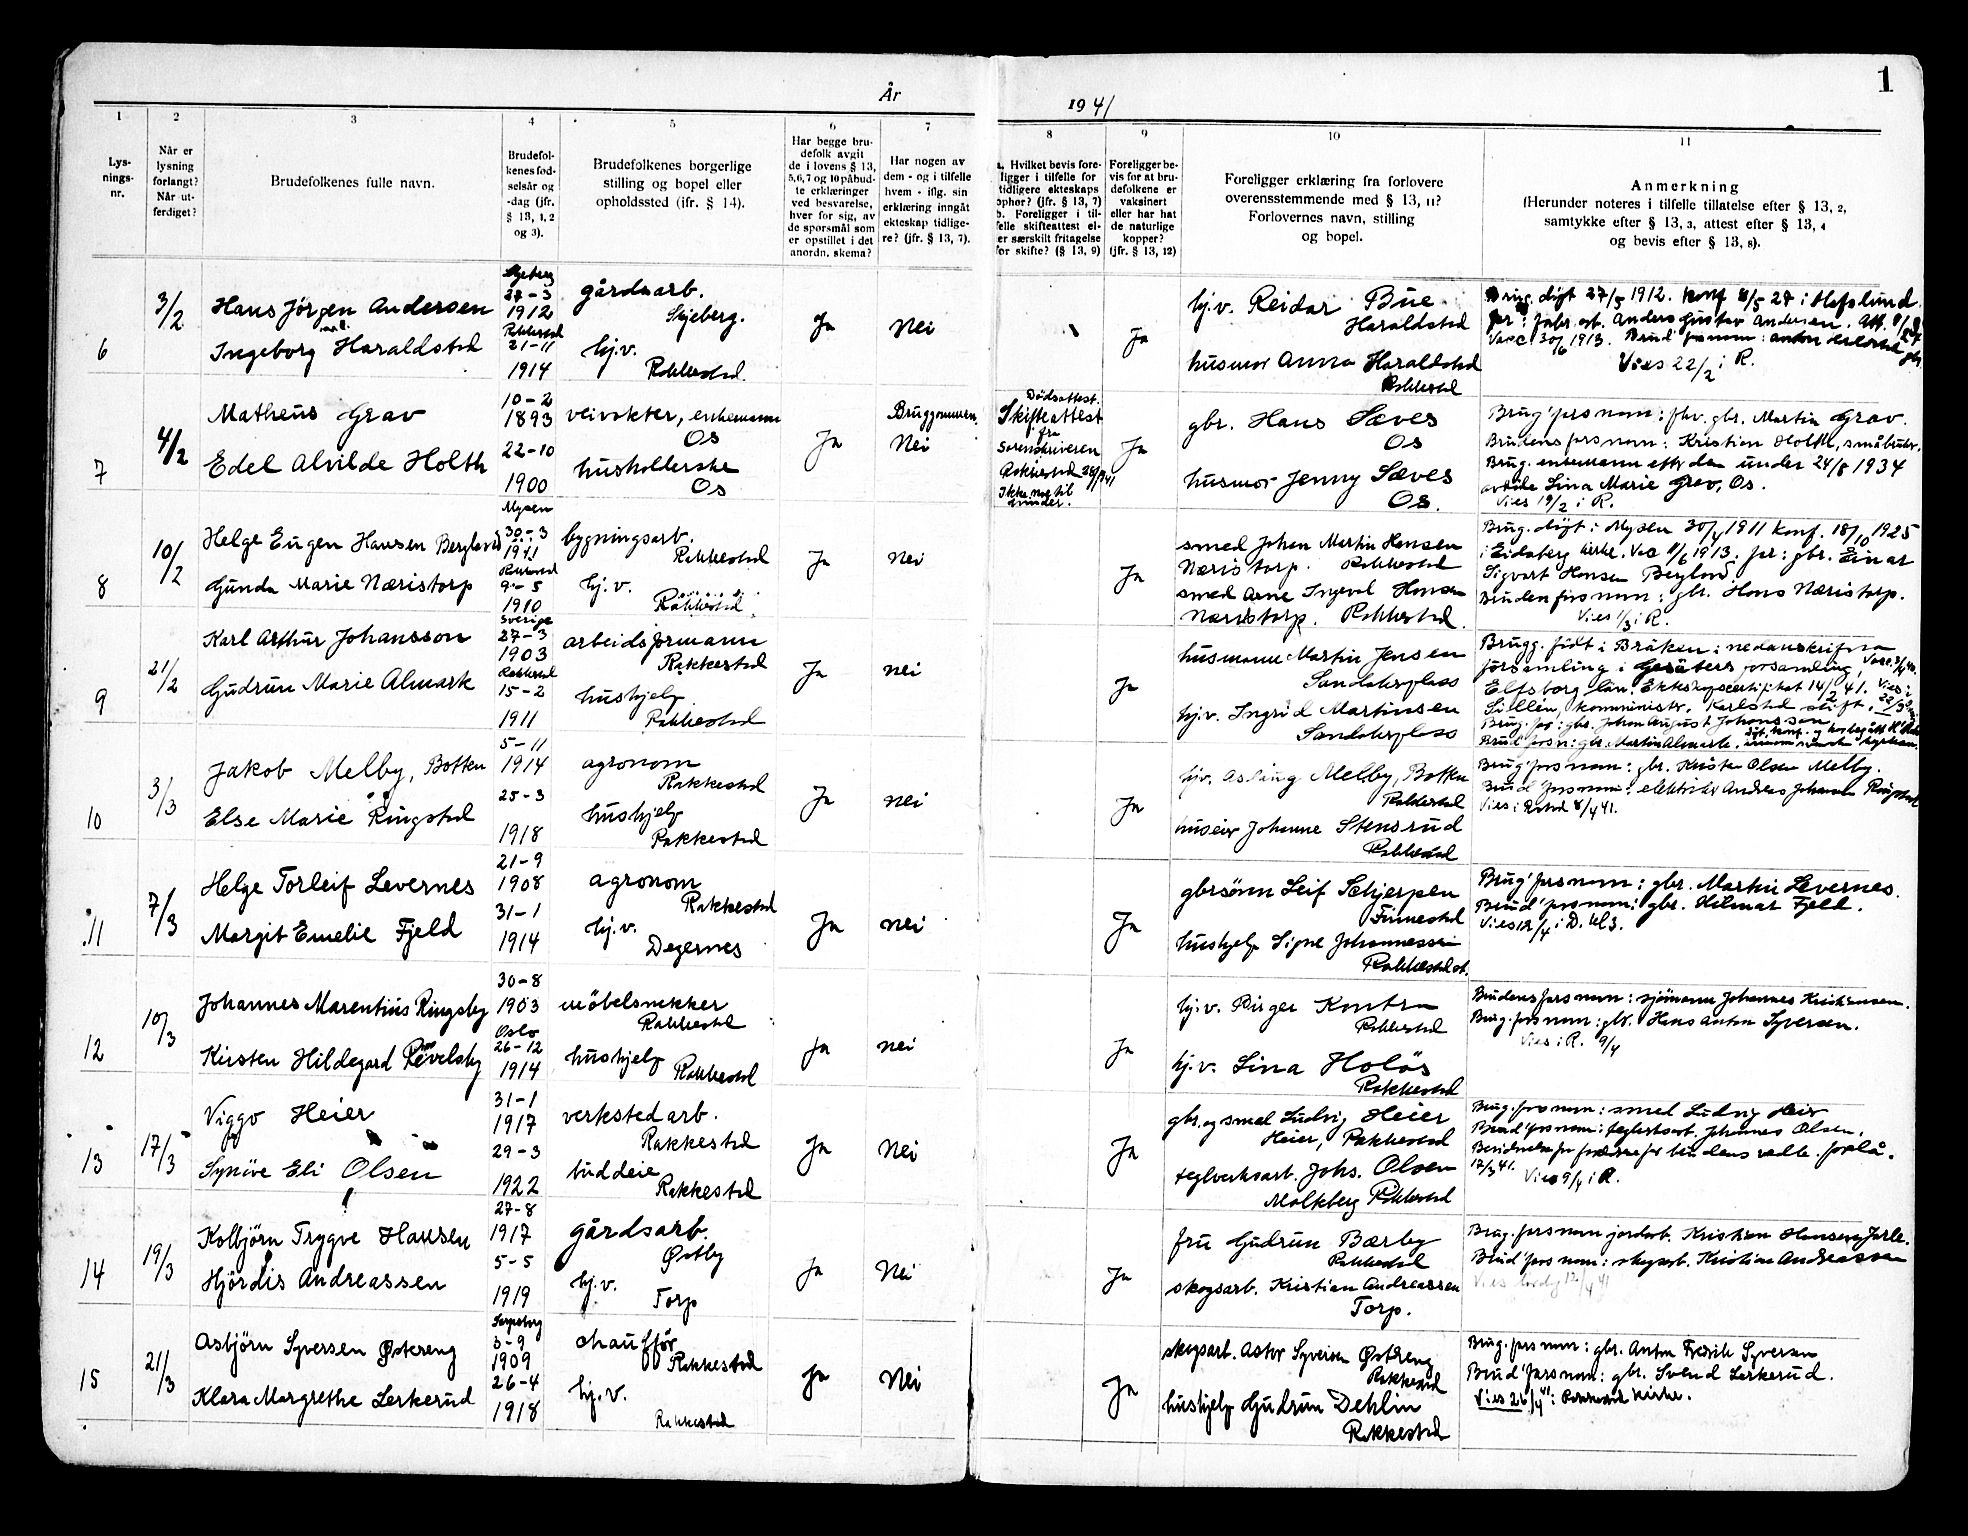 1
År 1941
1 2 3 4 5 6 7 8 9 10 11
Lys-
nings-
nr.
Når er
lysning
forlangt?
Når ut-
ferdiget?
Brudefolkenes fulle navn.
Brudefol-
kenes fød-
selsår og
-dag (jfr.
§ 13, 1, 2
og 3).
Brudefolkenes borgerlige
stilling og bopel eller
opholdssted (jfr. § 14).
Har begge bru-
defolk avgit
de i lovens § 13,
5, 6, 7 og 10 påbud-
te erklæringer
ved besvarelse,
hver for sig, av
de spørsmål som
er opstillet i det
anordn. skema?
Har nogen av
dem - og i tilfelle
hvem - iflg. sin
erklæring inngåt
ekteskap tidlige-
re? (jfr. § 13, 7).
a. Hvilket bevis fore-
ligger i tilfelle for
tidligere ekteskaps
ophør? (jfr. § 13, 7)
b. Foreligger i til-
felle skifteattest el-
er særskilt fritagelse
for skifte? (§ 13, 9)
Foreligger be-
vis for at bru-
defolkene er
vaksinert
eller har hat
de naturlige
kopper?
(jfr. § 13, 12)
Foreligger erklæring fra forlovere
overensstemmende med § 13, 11?
Forlovernes navn, stilling
og bopel.
Anmerkning
(Herunder noteres i tilfelle tillatelse efter § 13, 2,
samtykke efter § 13, 3, attest efter § 13, 4
og bevis efter § 13, 8).
6
3/2
Hans Jörgen Andersen
Ingeborg Haraldstad
Skjeberg
27-3
1912
Rakkestad
21-11
1914
gårdsarb.
Skjeberg.
hj.v.
Rakkestad.
Ja
Nei
Ja
hj.v. Reidar Bue
Haraldstad
husmor Anna Haraldstad
Rakkestad
Brug. døpt 27/5 1912. Konf 8/5 27 i Hafslund.
far: fabr. arb. Anders Gustav Andersen.
Vacc. 30/6 1913.
Vies 22/2 i R.
7
4/2
Matheus Grav
Edel Alvilde Holth
10-2
1893
22-10
1900
veivokter, enkemann
Os
husholderske
Os
Ja
Bruggommen.
Nei
Dødsattest.
Skifteattest
fra
Sorenskriveren
Ikke noe til
hinder.
Ja
gbr. Hans Sæves
Os
husmor Jenny Sæves
Os.
Brug' fars navn: fhv. gbr. Martin Grav.
Brudens fars navn: Kristian Holth, småbruker.
Brug. enkemann efter den under 24/8 1934
avdøde Lina Marie Grav, Os.
Vies 19/2 i R.
8
10/2
Helge Eugen Hansen Berglund
Gunda Marie Næristorp
Mysen
30-3
1911
Rakkestad
9-5
1910
bygningsarb.
Rakkestad
hj.v.
Rakkestad
Ja
Nei
Ja
smed Johan Martin Hansen
Næristorp. Rakkestad
smed Arne Ingval Hansen
Næristorp. Rakkestad.
Brug. døpt i Mysen 30/4 1911 Konf. 18/10 1925
i Eidsberg kirke. Vac 11/6 1913. far: gbr. Einar
Sigvart Hansen Berglund.
Brudens fars navn: gbr. Hans Næristorp.
Vies 1/3 i R.
9
21/2
Karl Arthur Johansson
Gudrun Marie Almark
Sverige
27-3
1903
Rakkestad
15-2
1911
arbeidsformann
Rakkestad
hushjelp
Rakkestad
Ja
nei
Ja
husmann Martin Jensen
Sandakerplass
hj.v. Ingrid Martinsen
Sandakerplass
Brugg. født i Bräken i nedanskrifna
församling i Gesäters forsamling,
Elfsborg län. Ekteskapscertifikat 14/2 41.
Sillén, komminister, Karlstad stift.
Brug. far: gbr. Johan August Johansson
Brud' fars n: gbr. Martin Almark.
10
3/3
Jakob Melby, Botten
Else Marie Ringstad
5-11
1914
25-3
1918
agronom
Rakkestad
hushjelp
Rakkestad
Ja
nei
Ja
hj.v. Aslaug Melby, Botten
Rakkestad
huseier Johanne Stensrud
Rakkestad
Brug' fars navn: gbr. Kristen Olsen Melby.
Brud' fars navn: elektriker Andreas Johansen Ringstad
Vies i Rakstad 8/4 41.
11
7/3
Helge Torleif Levernes
Margit Emelie Fjeld
21-9
1908
31-1
1914
agronom
Rakkestad
hj.v.
Degernes
Ja
nei
Ja
gbrsönn Leif Schjerpen
Finnestad
hushjelp Signe Johannessen
Rakkestad st.
Brug' fars navn: gbr. Martin Levernes.
Brud' fars navn: gbr. Hilmar Fjeld.
Vies 12/4 i D. kl 3.
12
10/3
Johannes Marentius Ringsby
Kirsten Hildegard Revelsby
30-8
1903
Oslo
26-12
1914
möbelsnekker
Rakkestad
hushjelp
Rakkestad
Ja
nei
Ja
hj.v. Birger Kontra
Rakkestad
hj.v. Lina Holös
Rakkestad
Brudens fars navn: sjömann Johannes Kristiansen.
Brug. fars navn: gbr. Hans Anton Syversen.
Vies i R. 9/4
13
17/3
Viggo Heier
Synöve Eli Olsen
31-1
1917
29-3
1922
verkstedarb.
Rakkestad
buddeie
Rakkestad
Ja
Nei
Ja
gbr. og smed Ludvig Heier
Heier, Rakkestad
teglverksarb. Johs. Olsen
Molkberg Rakkestad
Brug. fars navn: smed Ludvig Heier
Brud' fars navn: teglverksarb. Johannes Olsen.
17/3 41.
Vies 9/4 i R.
14
19/3
Kolbjörn Trygve Hansen
Hjördis Andreassen
27-8
1917
5-5
1919
gårdsarb.
Østby
hj.v.
Torp
Ja
Nei
Ja
fru Gudrun Bærby
Rakkestad
skogsarb. Kristian Andreassen
Torp.
Brug. fars navn jordarb. Kristian Hansen, Jarle.
Brud' fars navn: skogsarb. Kristian Andreassen
15
21/3
Asbjörn Syversen Østereng
Klara Margrethe Lerkerud
Sarpsborg
3-9
1909
26-4
1918
chauffør
Rakkestad
hj.v.
Rakkestad
Ja
Nei
Ja
skogsarb. Astor Syversen Østreng
Rakkestad
hushjelp Gudrun Dehlin
Rakkestad
Brug. fars navn: gbr. Anton Fredrik Syversen
Brud' fars navn: gbr. Svend Lerkerud.
Vies 26/4 41 i Rakkestad kirke.